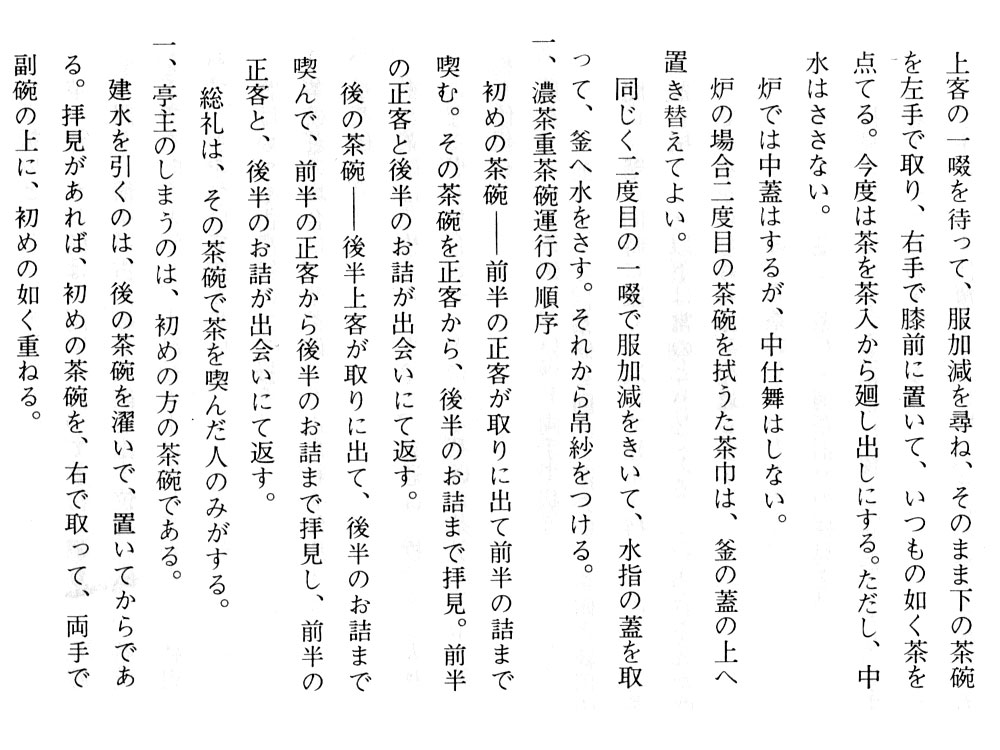 上客の一啜を待って、服加減を尋ね、そのまま下の茶碗
を左手で取り、右手で膝前に置いて、いつもの如く茶を
点てる。今度は茶を茶入から廻し出しにする。ただし、中
水はささない。
炉では中蓋はするが、中仕舞はしない。
炉の場合二度目の茶碗を拭うた茶巾は、釜の蓋の上へ
置き替えてよい。
同じく二度目の一啜で服加減をきいて、水指の蓋を取
って、釜へ水をさす。それから帛紗をつける。
一、濃茶重茶碗運行の順序
初めの茶碗――前半の正客が取りに出て前半の詰まで
喫む。その茶碗を正客から、後半のお詰まで拝見。前半
の正客と後半のお詰が出会いにて返す。
後の茶碗――後半上客が取りに出て、後半のお詰まで
喫んで、前半の正客から後半のお詰まで拝見し、前半の
正客と、後半のお詰が出会いにて返す。
総礼は、その茶碗で茶を喫んだ人のみがする。
一、亭主のしまうのは、初めの方の茶碗である。
建水を引くのは、後の茶碗を濯いで、置いてからであ
る。拝見があれば、初めの茶碗を、右で取って、両手で
副碗の上に、初めの如く重ねる。